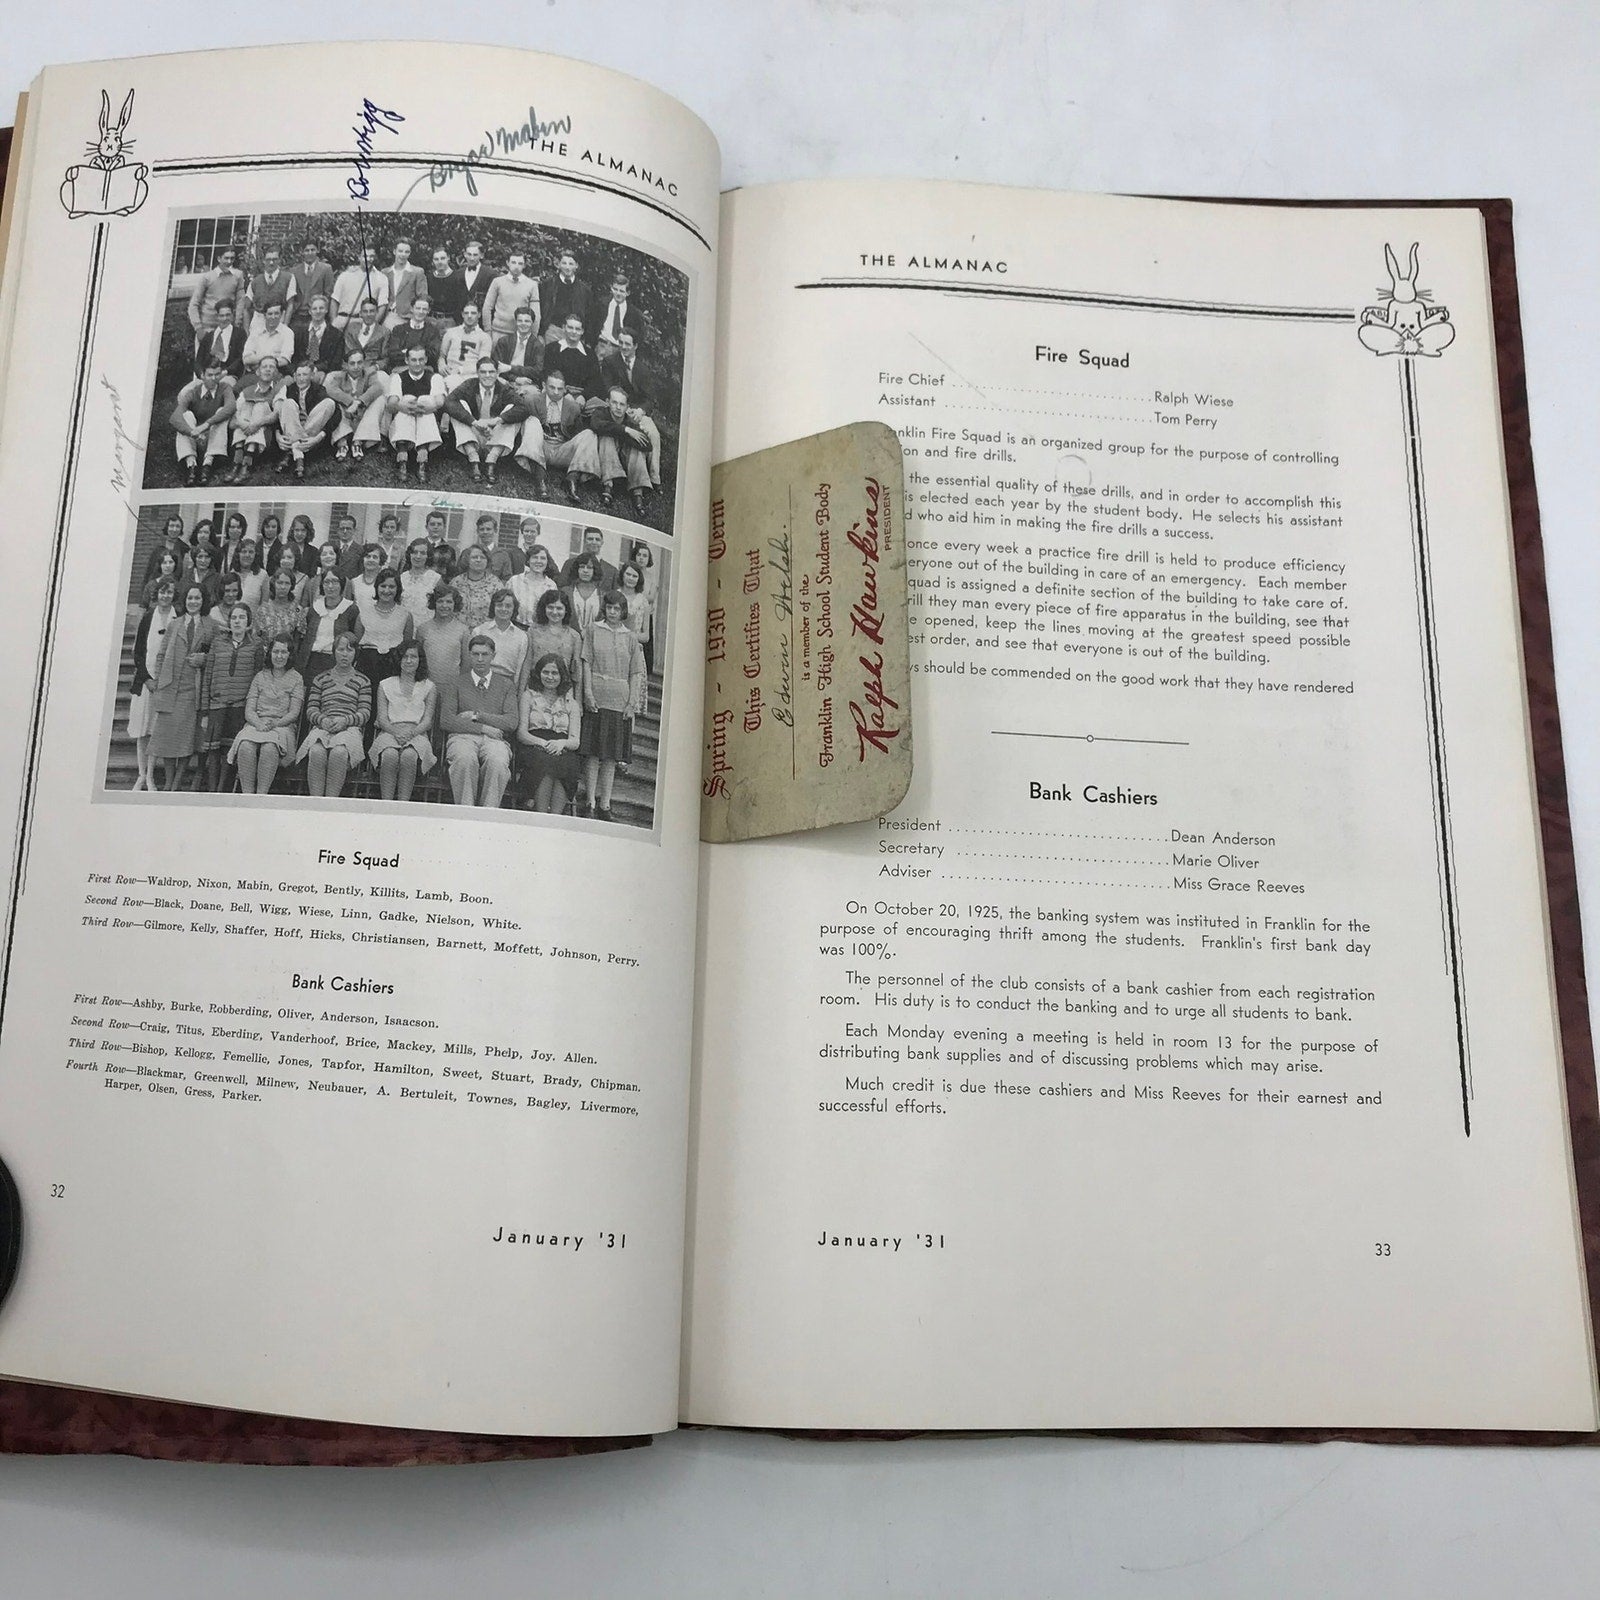 THE ALMANAC
Bob Wigg
Mabin
margaret
Fire Squad
First Row—Waldrop, Nixon, Mabin, Gregot, Bently, Killits, Lamb, Boon.
Second Row—Black, Doane, Bell, Wigg, Wiese, Linn, Gadke, Nielson, White.
Third Row—Gilmore, Kelly, Shaffer, Hoff, Hicks, Christiansen, Barnett, Moffett, Johnson, Perry.
Bank Cashiers
First Row—Ashby, Burke, Robberding, Oliver, Anderson, Isaacson.
Second Row—Craig, Titus, Eberding, Vanderhoof, Brice, Mackey, Mills, Phelp, Joy. Allen.
Third Row—Bishop, Kellogg, Femellic, Jones, Tapfor, Hamilton, Sweet, Stuart, Brady, Chipman.
Fourth Row—Blackmar, Greenwell, Milnew, Neubauer, A. Bertuleit, Townes, Bagley, Livermore,
Harper, Olsen, Gress, Parker.
32
January '31
Spring - 1930 - Term
This Certifies That
Edwin Welsh.
is a member of the
Franklin High School Student Body
Ralph Hawkins
PRESIDENT
THE ALMANAC
F
Fire Squad
Fire Chief ........................ Ralph Wiese
Assistant ........................ Tom Perry
nklin Fire Squad is an organized group for the purpose of controlling
on and fire drills.
the essential quality of these drills, and in order to accomplish this
is elected each year by the student body. He selects his assistant
d who aid him in making the fire drills a success.
once every week a practice fire drill is held to produce efficiency
eryone out of the building in care of an emergency. Each member
quad is assigned a definite section of the building to take care of.
rill they man every piece of fire apparatus in the building, see that
e opened, keep the lines moving at the greatest speed possible
est order, and see that everyone is out of the building.
ys should be commended on the good work that they have rendered
Bank Cashiers
President ........................ Dean Anderson
Secretary ........................ Marie Oliver
Adviser ........................ Miss Grace Reeves
On October 20, 1925, the banking system was instituted in Franklin for the
purpose of encouraging thrift among the students. Franklin's first bank day
was 100%.
The personnel of the club consists of a bank cashier from each registration
room. His duty is to conduct the banking and to urge all students to bank.
Each Monday evening a meeting is held in room 13 for the purpose of
distributing bank supplies and of discussing problems which may arise.
Much credit is due these cashiers and Miss Reeves for their earnest and
successful efforts.
January '31
33